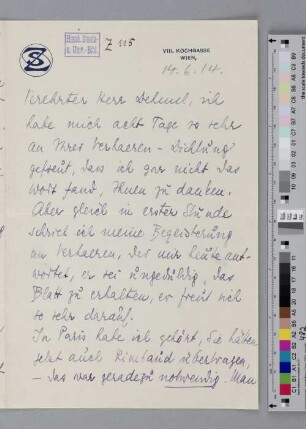 SZ
Hamb. Staats-
u. Univ.-Bibl.
Z 115
VIII. KOCHGASSE 8
WIEN,
14.6.14.
Verehrter Herr Dehmel, ich
habe mich acht Tage so sehr
an Ihrer Verhaeren-Dichtung
gefreut, dass ich gar nicht das
Wort fand, Ihnen zu danken.
Aber gleich in erster Stunde
schrieb ich meine Begeisterung
an Verhaeren, der mir heute ant-
wortet, er sei ungeduldig, das
Blatt zu erhalten, er freut sich
so sehr darauf.
In Paris habe ich gehört, Sie hätten
jetzt auch Rimbaud übertragen,
– das war geradezu notwendig. Man